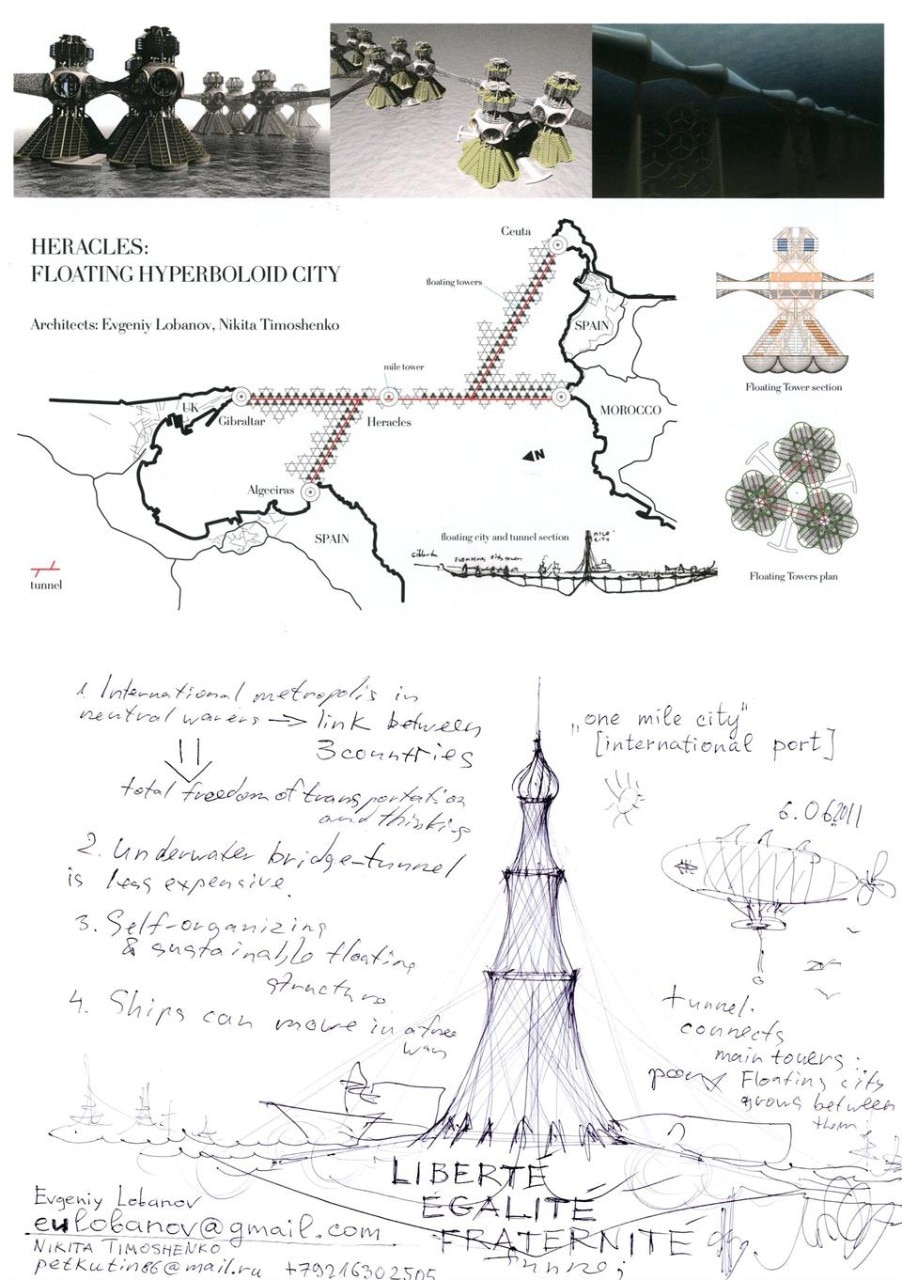 HERACLES:
FLOATING HYPERBOLOID CITY
Architects: Evgeniy Lobanov, Nikita Timoshenko
Ceuta
floating towers
SPAIN
mile tower
UK
Gibraltar
Heracles
MOROCCO
N
Algeciras
SPAIN
tunnel
floating city and tunnel section
MILE
CITY
Floating Tower section
Floating Towers plan
1 International metropolis in
neutral waters → link between
3 countries
total freedom of transportation
and thinking
2. Underwater bridge-tunnel
is less expensive.
3. Self-organizing
& sustainable floating
structure
4. Ships can move in a free
way
„one mile city"
[international port]
6.06.2011
tunnel
connects
main towers
Floating city
grows between
them
LIBERTÉ
ÉGALITÉ
FRATERNITÉ
Evgeniy Lobanov
eulobanov@gmail.com
NIKITA TIMOSHENKO
petkutin86@mail.ru +79216302505